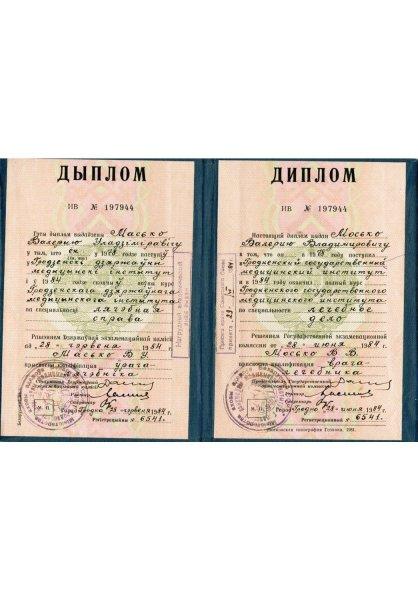 ДЫПЛОМ
ИВ № 197944
Гэты дыплом выдадзены Масько
Валерыю Уладзіміравічу
у тым, што ён у 1978 годзе паступіў
у Гродзенскі дзяржаўны
медыцынскі інстытут
і ў 1984 скончыў поўны курс
Гродзенскага дзяржаўнага
медыцынскага інстытута
па спецыяльнасці лячэбная
справа
Рашэннем Дзяржаўнай экзаменацыйнай камісіі
ад 28 чэрвеня 1984 г.
Масько В. У.
прысвоена кваліфікацыя урача-
лячэбніка
Старшыня Дзяржаўнай
экзаменацыйнай камісіі
Рэктар
Сакратар
Горад Гродна 28 чэрвеня 1984 г.
Рэгістрацыйны № 6541.
Нагрудны знак
ДИПЛОМ
ИВ № 197944
Настоящий диплом выдан Мосько
Валерию Владимировичу
в том, что он в 1978 году поступил
в Гродненский государственный
медицинский институт
и в 1984 окончил полный курс
Гродненского государственного
медицинского института
по специальности лечебное
дело
Решением Государственной экзаменационной
комиссии от 28 июня 1984 г.
Мосько В. В.
присвоена квалификация врача-
лечебника
Председатель Государственной
экзаменационной комиссии
Ректор
Секретарь
Город Гродно 28 июня 1984 г.
Регистрационный № 6541.
Московская типография Гознака. 1981.